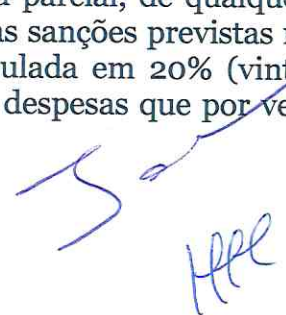 parcial, de qualque
as sanções previstas
ulada em 20% (vint
despesas que por ve